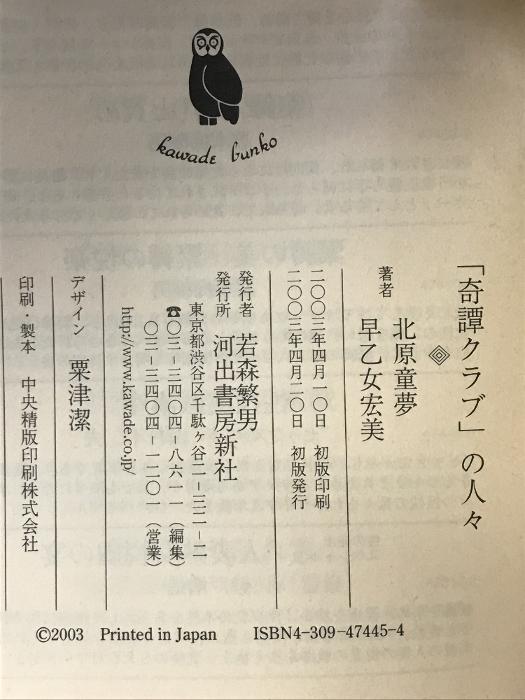 kawade bunko
「奇譚クラブ」の人々
著者
北原童夢
早乙女宏美
二〇〇三年四月一〇日 初版印刷
二〇〇三年四月二〇日 初版発行
発行者 若森繁男
発行所 河出書房新社
東京都渋谷区千駄ヶ谷二-三二-二
☎〇三-三四〇四-八六一一（編集）
〇三-三四〇四-一二〇一（営業）
http://www.kawade.co.jp/
デザイン 粟津潔
印刷・製本 中央精版印刷株式会社
©2003 Printed in Japan ISBN4-309-47445-4